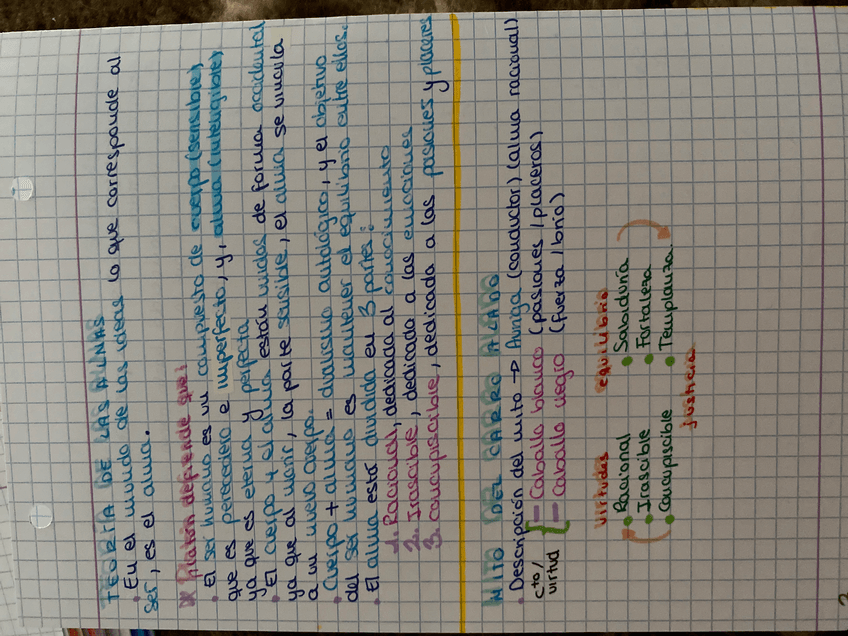 TEORÍA DE LAS ALMAS
• En el mundo de las ideas lo que corresponde al
ser, es el alma.
* Platón defiende que:
• El ser humano es un compuesto de cuerpo (sensible),
que es perecedero e imperfecto, y, alma (inteligible),
ya que es eterna y perfecta
• El cuerpo y el alma están unidos de forma accidental
ya que al morir, la parte sensible, el alma se vincula
a un nuevo cuerpo.
• Cuerpo + alma = dualismo antológico, y el objetivo
del ser humano es mantener el equilibrio entre ellos.
• El alma está dividida en 3 partes:
1. Racional, dedicada al conocimiento
2. Irascible, dedicada a las emociones
3. concupiscible, dedicada a las pasiones y placeres
MITO DEL CARRO ALADO
• Descripción del mito → Auriga (conductor) (alma racional)
cto/ virtud { – Caballo blanco (pasiones / placeres)
– Caballo negro (fuerza / brío)
virtudes equilibrio
• Racional • Sabiduría
• Irascible • Fortaleza
• Concupiscible • Templanza
justicia
2